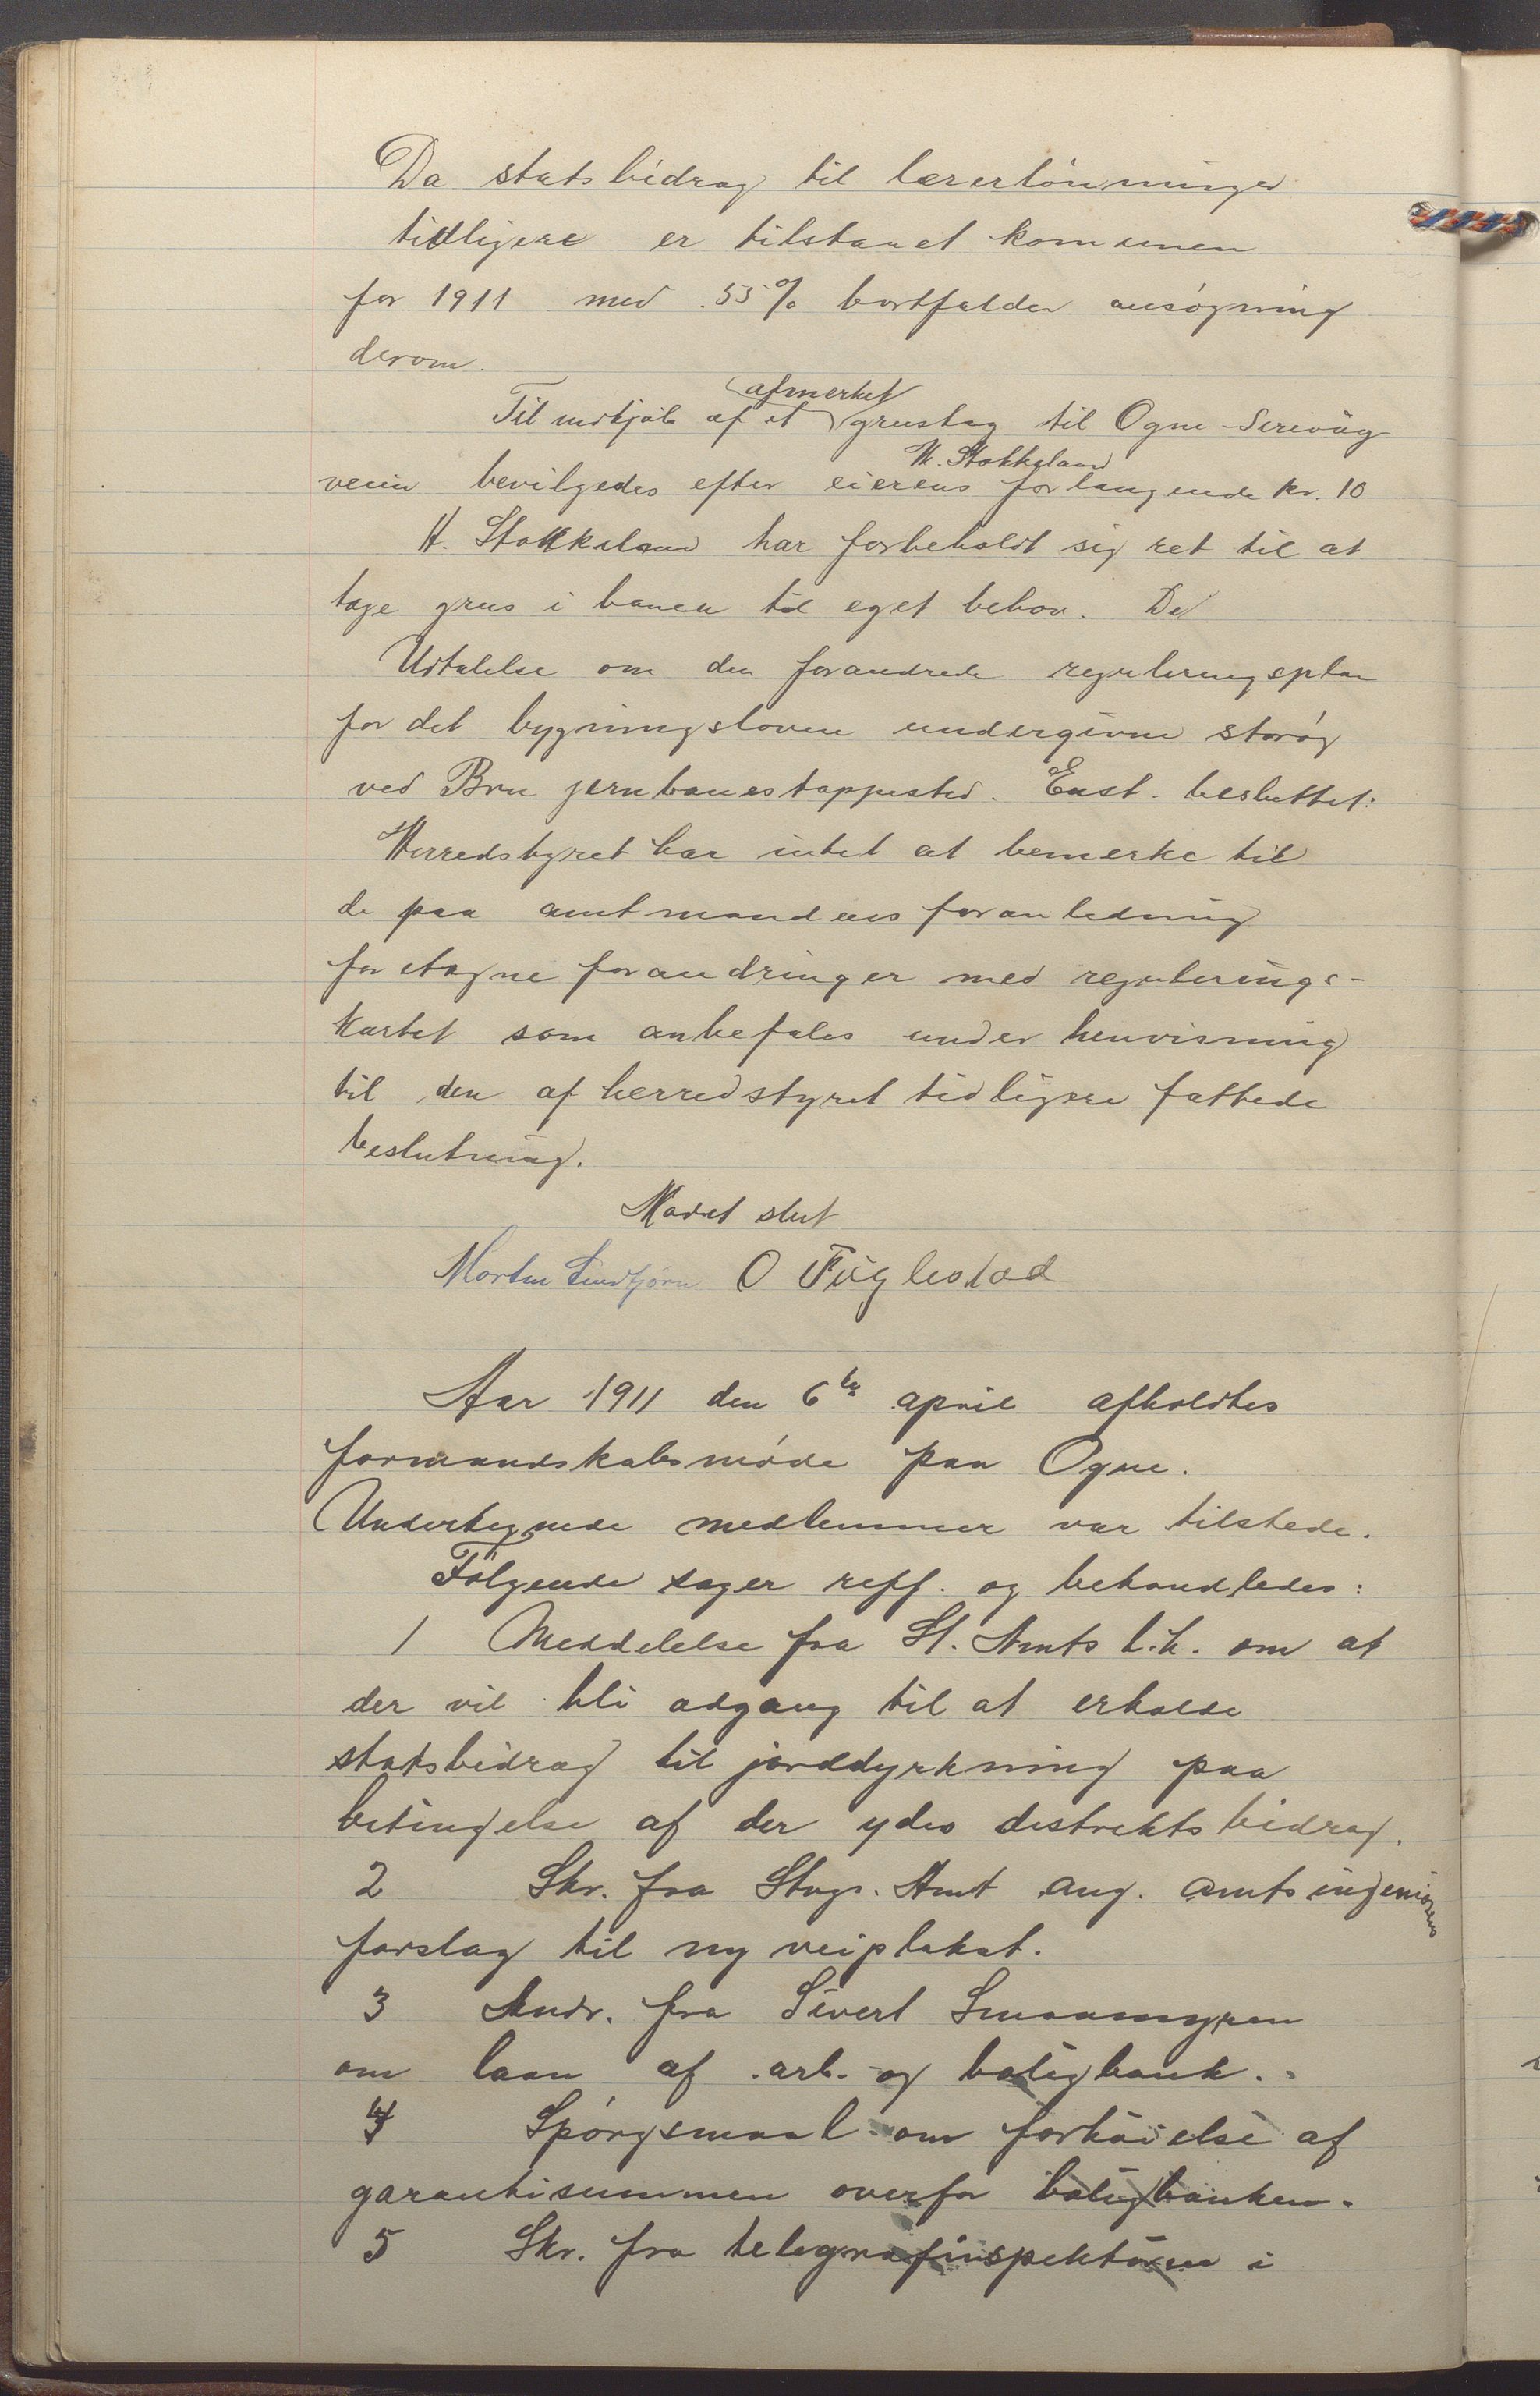 Da statsbidrag til lærerlönninger
tidligere er tilstaaet komunen
for 1911 med 55% bortfalder ansögning
derom.
afmerket
Til indkjöb af et grustag til Ogne-Sirevåg
H. Stokkeland
veien bevilgedes efter eierens forlangende kr. 10
H. Stokkeland har forbeholdt sig ret til at
tage grus i banen til eget behov. De
Udtalelse om den forandrede reguleringsplan
for det bygningsloven undergivne strög
ved Bru jernbanestoppested. Enst. besluttet:
Herredstyret har intet at bemerke til
de paa amtmandens foranledning
foretagne forandringer med regulerings-
kartet som anbefales under henvisning
til den af herredstyret tidligere fattede
beslutning.
Mödet slut
Morten O Fuglestad
Aar 1911 den 6te april afholdtes
formandskabsmöde paa Ogne.
Undertegnede medlemmer var tilstede.
Fölgende sager reff. og behandledes:
1 Meddelelse fra St. Amts l.h. om at
der vil bli adgang til at erholde
statsbidrag til jorddyrkning paa
betingelse af der ydes destriktsbidrag.
2 Skr. fra Stvgr. Amt ang. amtsingeniörens
forslag til ny veiplakat.
3 Andr. fra Sivert Smaamyren
om laan af arb. og boligbank.
4 Spörgsmaal om forhöielse af
garantisummen overfor boligbanken.
5 Skr. fra telegrafinspektören i